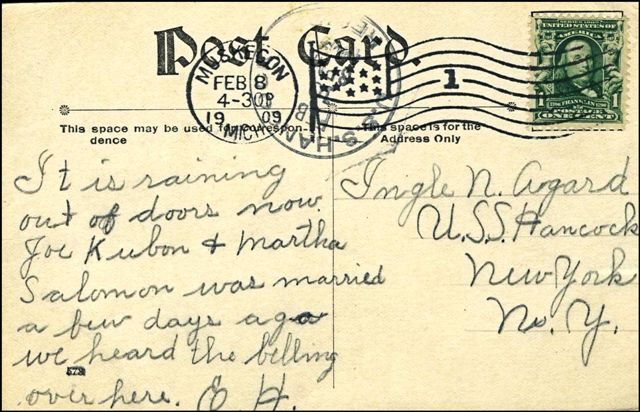 Post Card.
MUSKEGON
FEB 8
4-30P
1909
MICH.
U.S.S. HANCOCK
1
SERIES 1902
UNITED STATES OF AMERICA
FRANKLIN
1 POSTAGE 1
ONE CENT
This space may be used for correspondence
This space is for the
Address Only
It is raining
out of doors now.
Joe Kubon & Martha
Salomon was married
a few days ago
we heard the belling
over here. E H.
Ingle N. Avgard
U.S.S. Hancock
New York
N. Y.